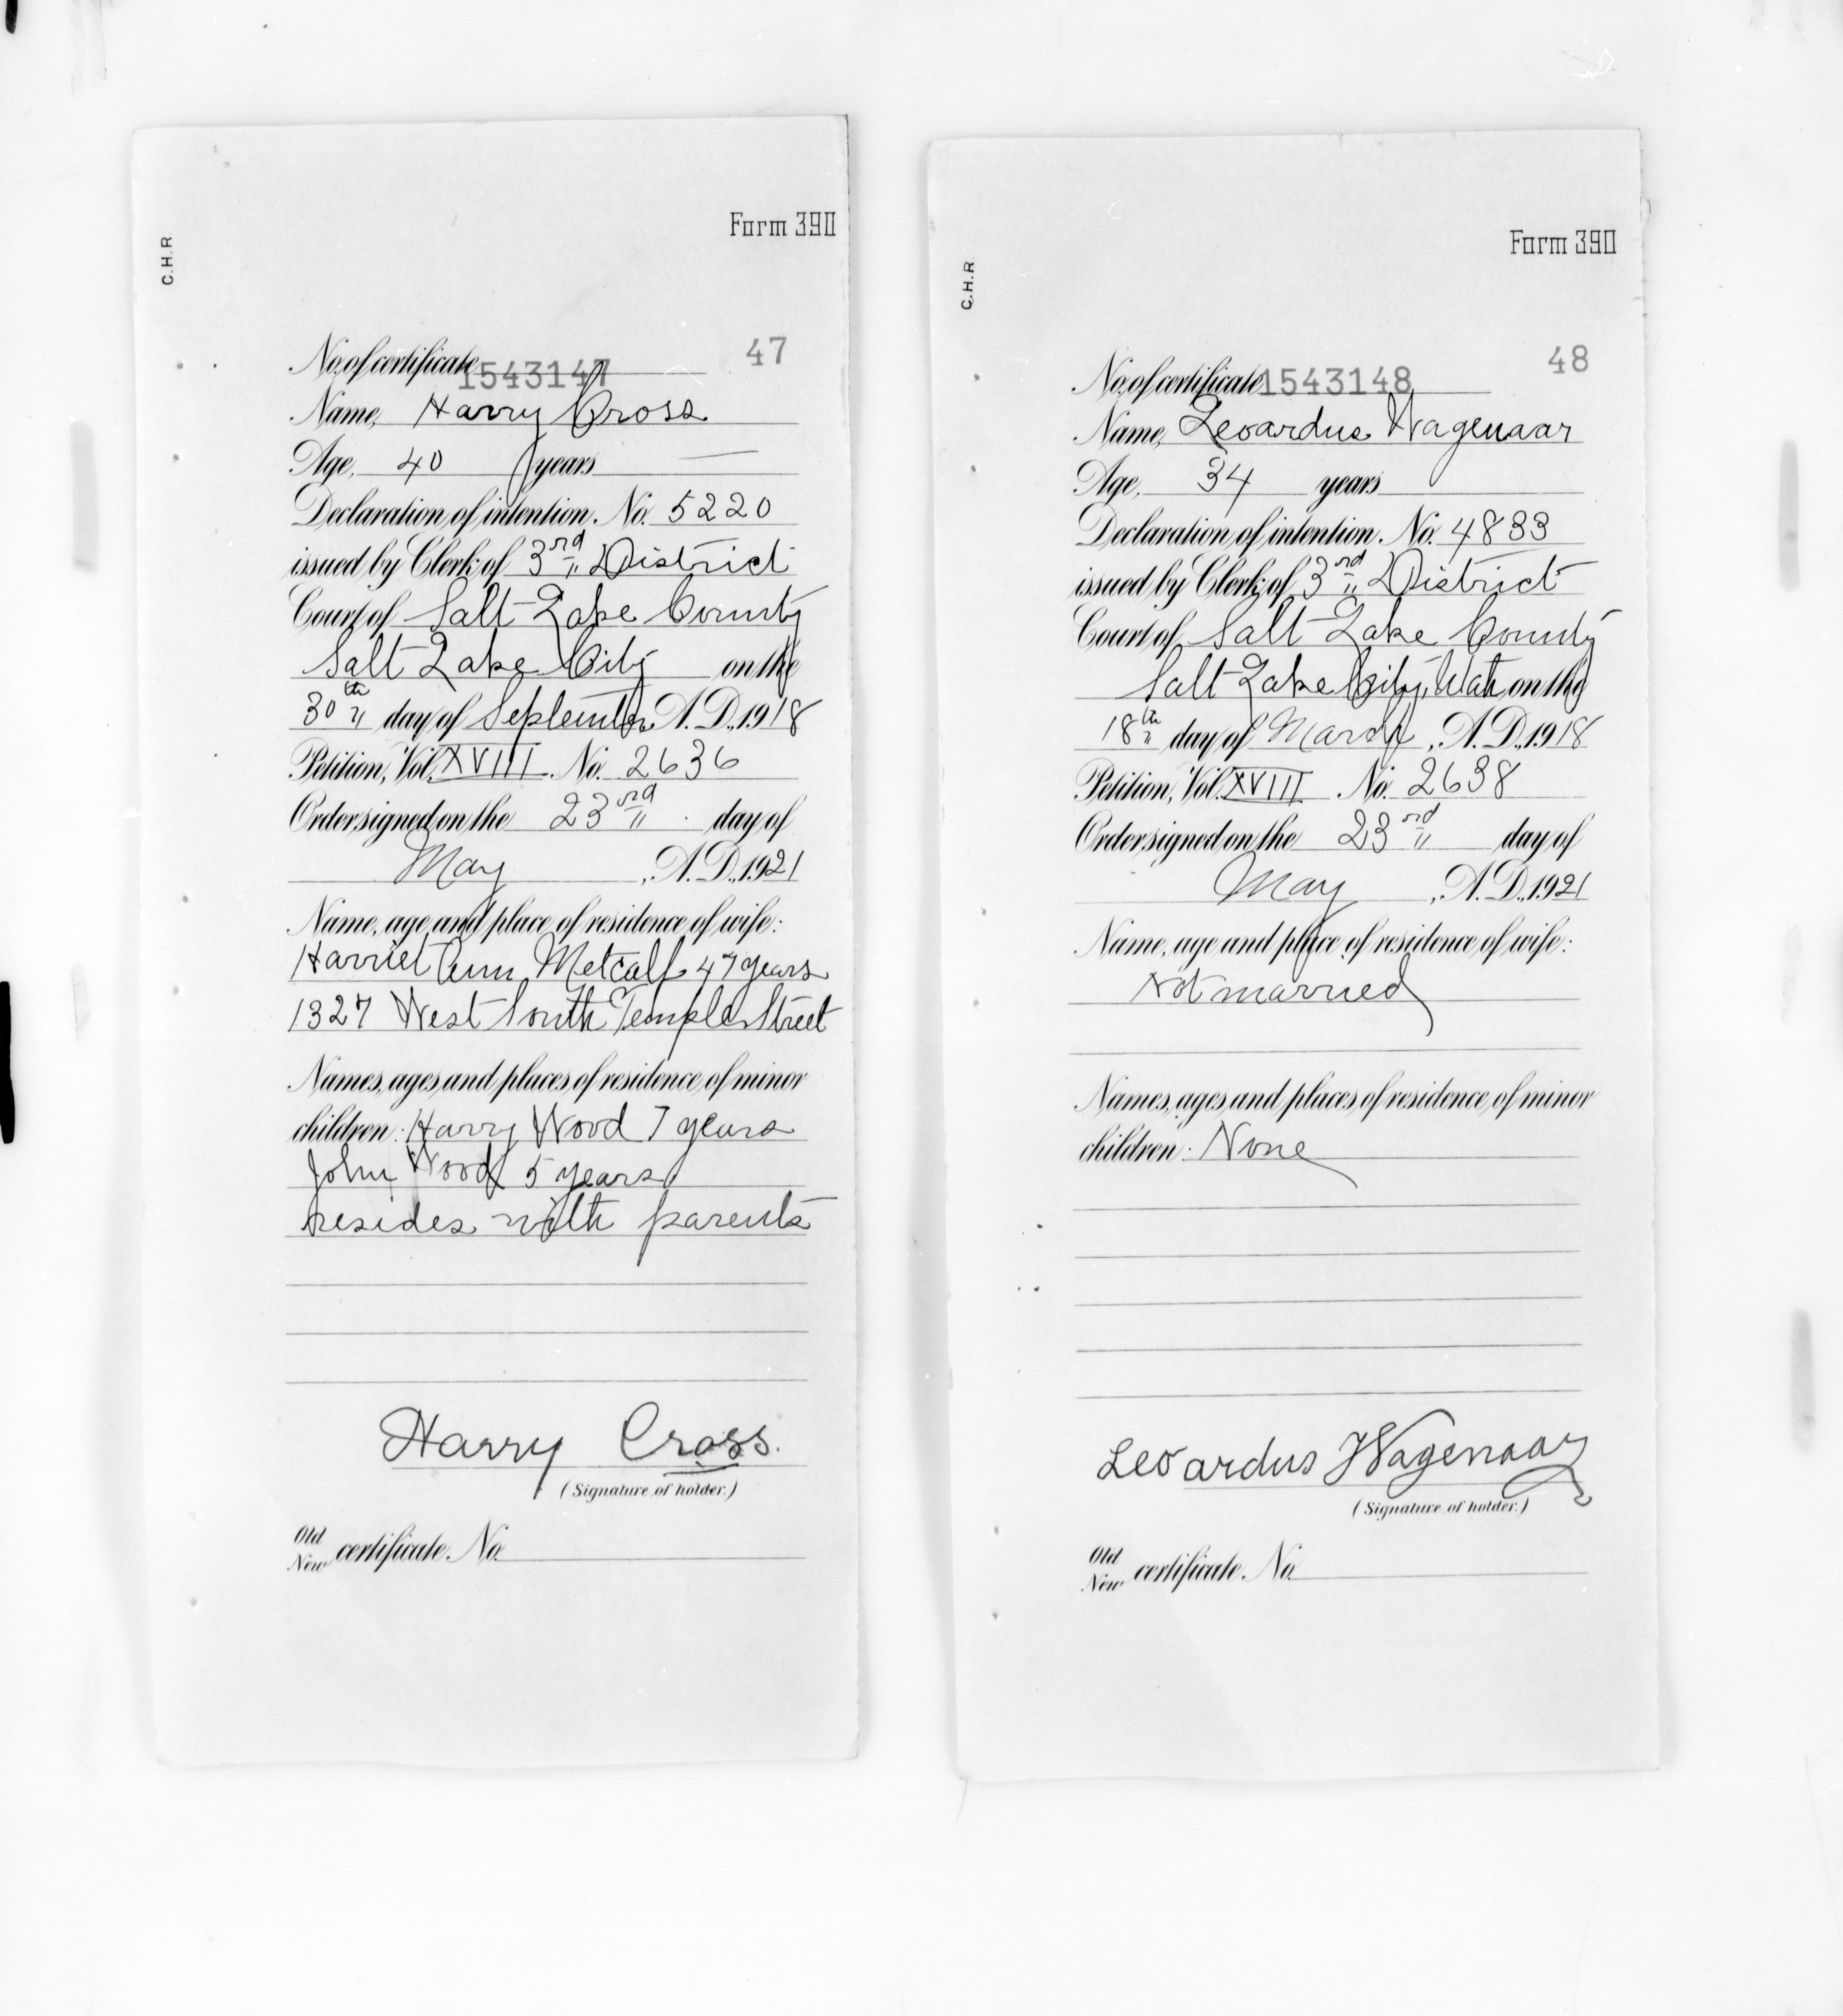 Form 390
C.H.R
47
No. of certificate 1543147
Name, Harry Cross
Age, 40 years
Declaration of intention, No. 5220
issued by Clerk of 3rd District
Court of Salt Lake County
Salt Lake City on the
30th day of September A. D., 1918
Petition, Vol. XVIII No. 2636
Order signed on the 23rd day of
May, A. D., 1921
Name, age and place of residence of wife:
Harriet Ann Metcalf 47 years
1327 West South Temple Street
Names, ages and places of residence of minor
children: Harry Wood 7 years
John Wood 5 years
resides with parents
Harry Cross.
(Signature of holder.)
Old
New certificate No.
Form 390
C.H.R
48
No. of certificate 1543148
Name, Leoardus Wagenaar
Age, 34 years
Declaration of intention, No. 4833
issued by Clerk of 3rd District
Court of Salt Lake County
Salt Lake City, Utah on the
18th day of March, A. D., 1918
Petition, Vol. XVIII No. 2638
Order signed on the 23rd day of
May, A. D., 1921
Name, age and place of residence of wife:
Not married
Names, ages and places of residence of minor
children: None
Leoardus Wagenaar
(Signature of holder.)
Old
New certificate No.